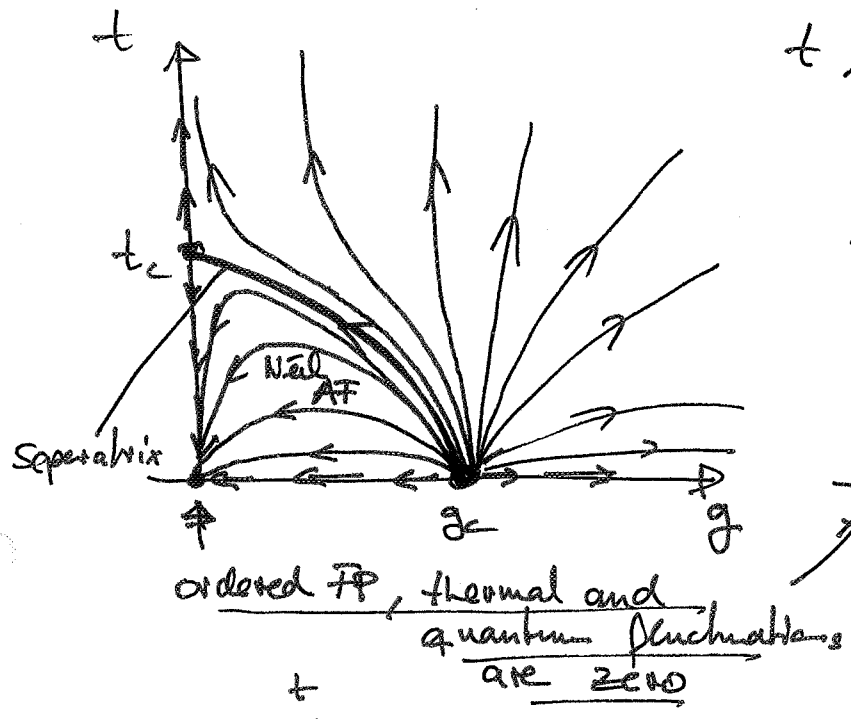 t
t
t_c
Néel
AF
Seperatrix
g_c
g
ordered FP, thermal and
quantum fluctuations
are zero
t